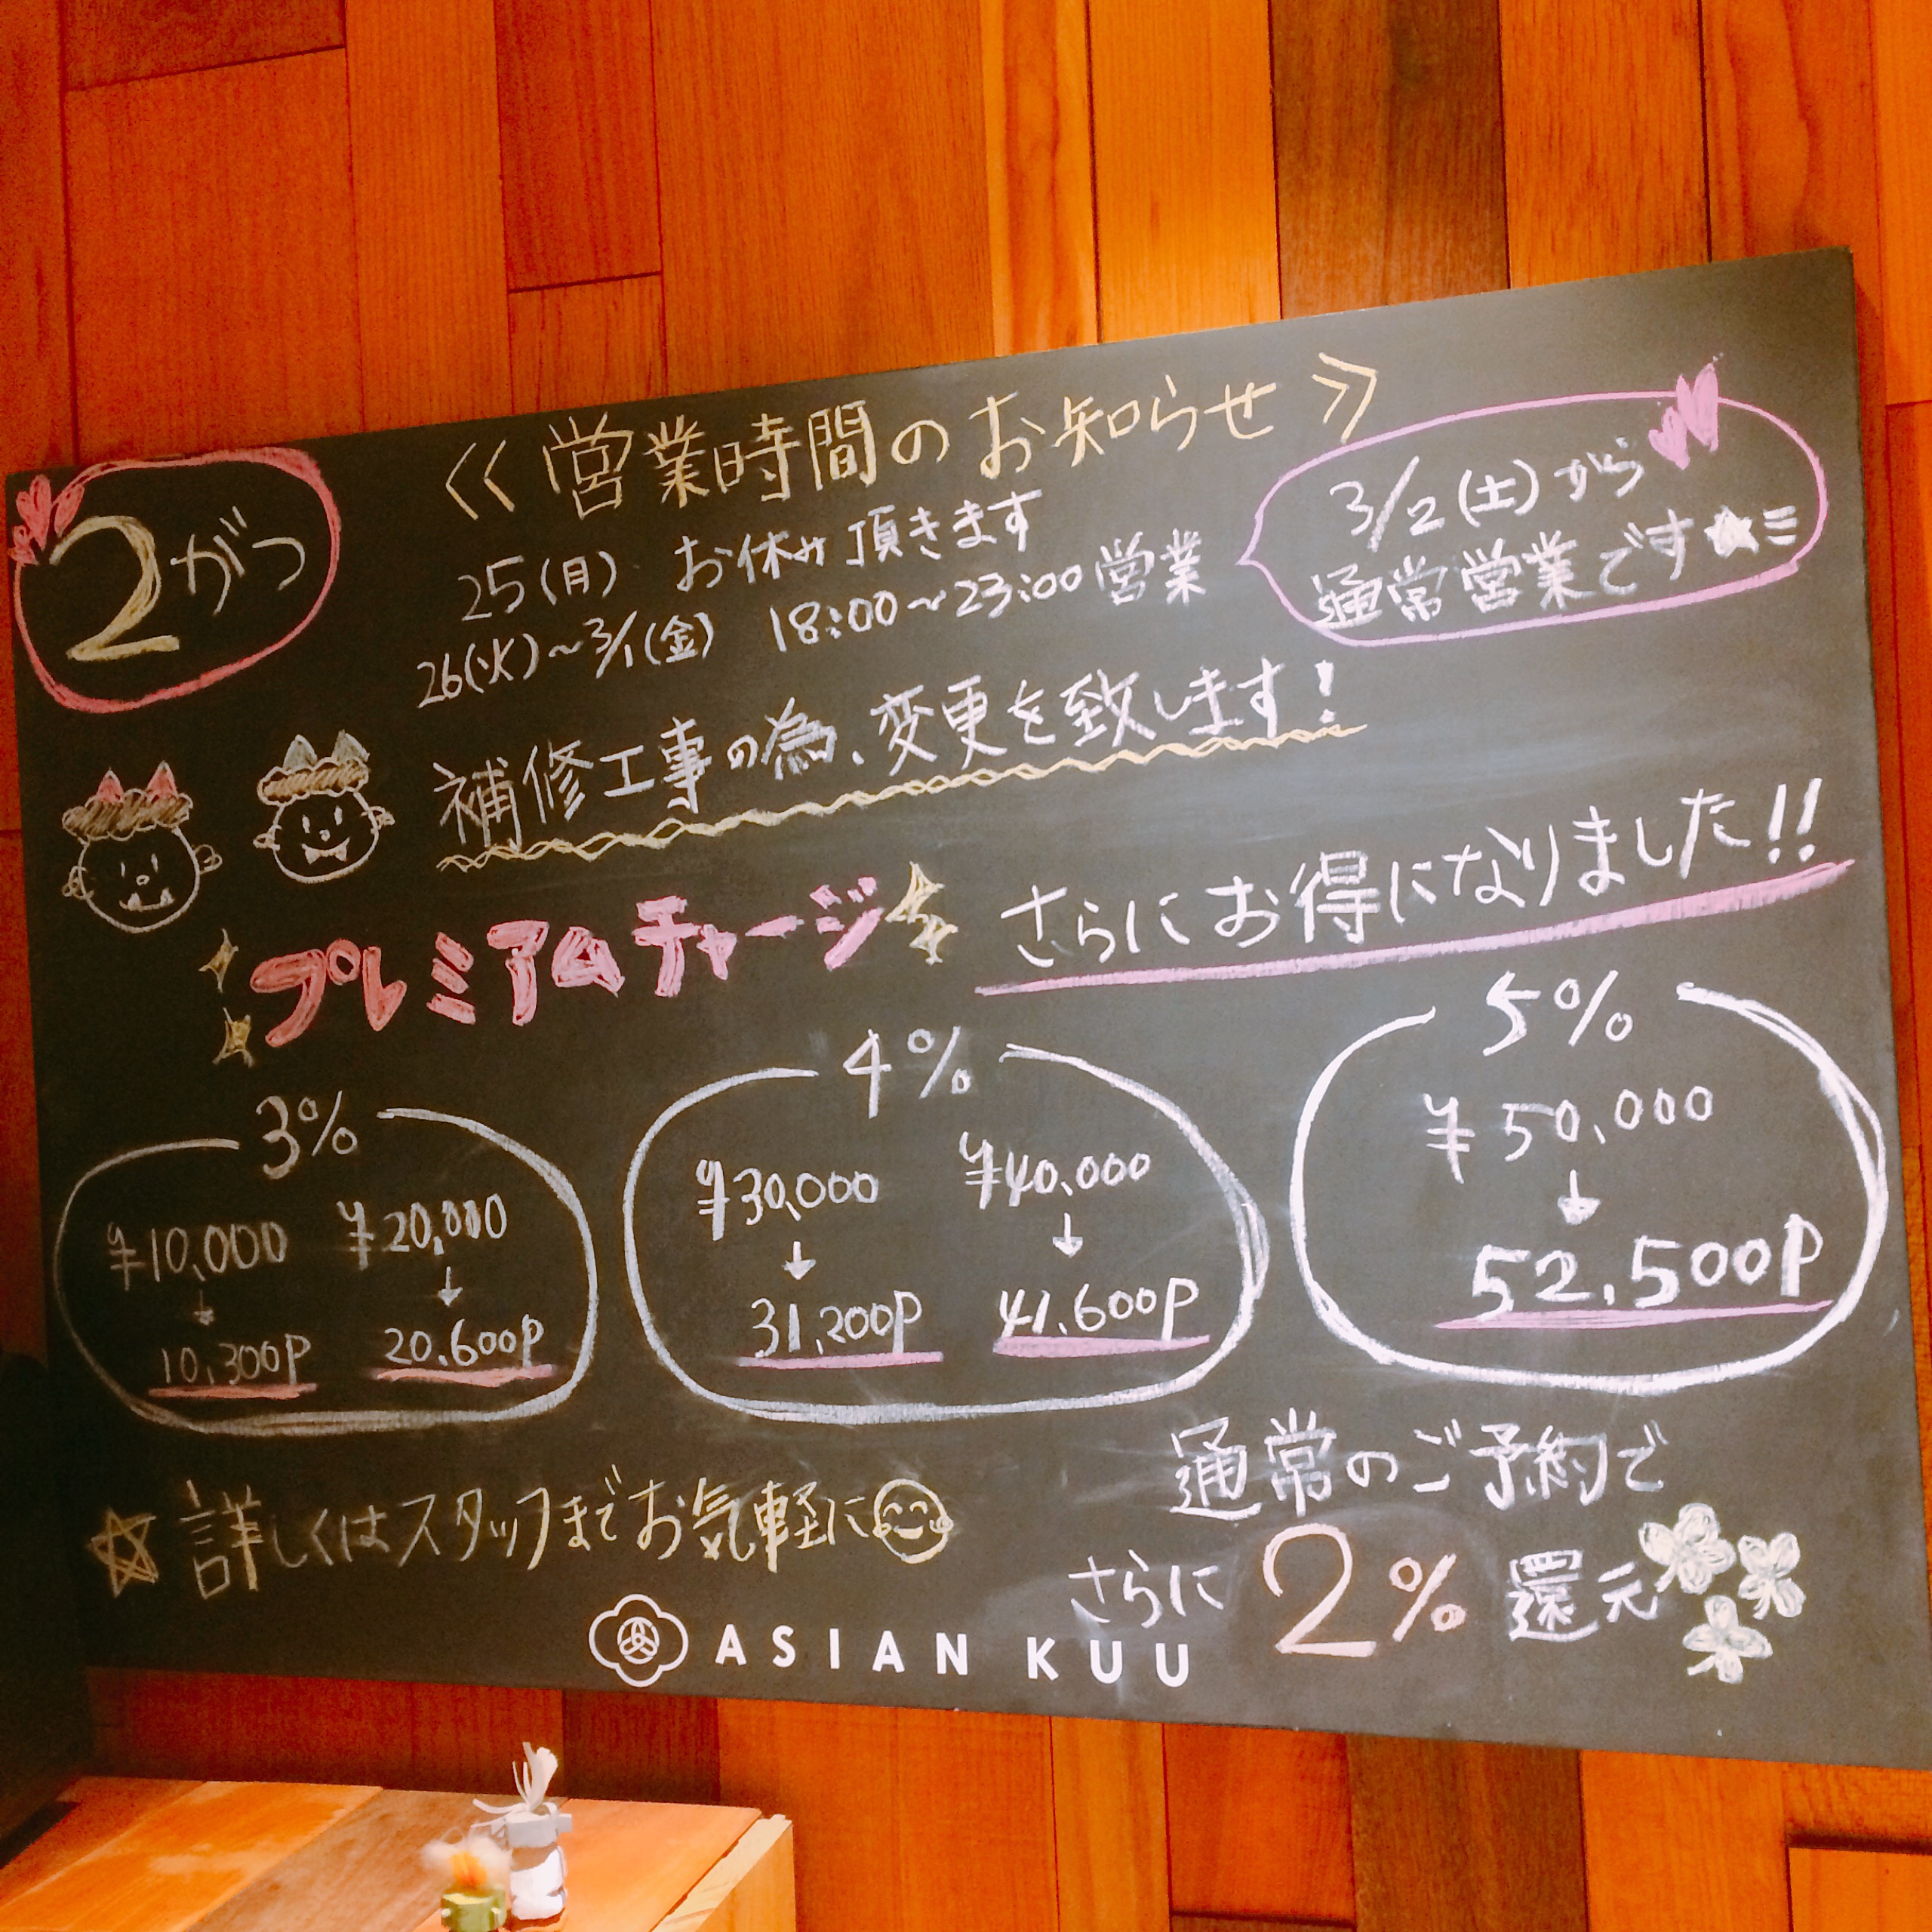 2がつ
<<営業時間のお知らせ>>
25(月) お休み頂きます
26(火)～3/1(金) 18:00～23:00営業
3/2(土)から
通常営業です★
補修工事の為、変更を致します!
プレミアムチャージ
さらにお得になりました!!
3%
¥10,000 ¥20,000
↓ ↓
10,300P 20,600P
4%
¥30,000 ¥40,000
↓ ↓
31,200P 41,600P
5%
¥50,000
↓
52,500P
☆詳しくはスタッフまでお気軽に
通常のご予約で
さらに2%還元
ASIAN KUU